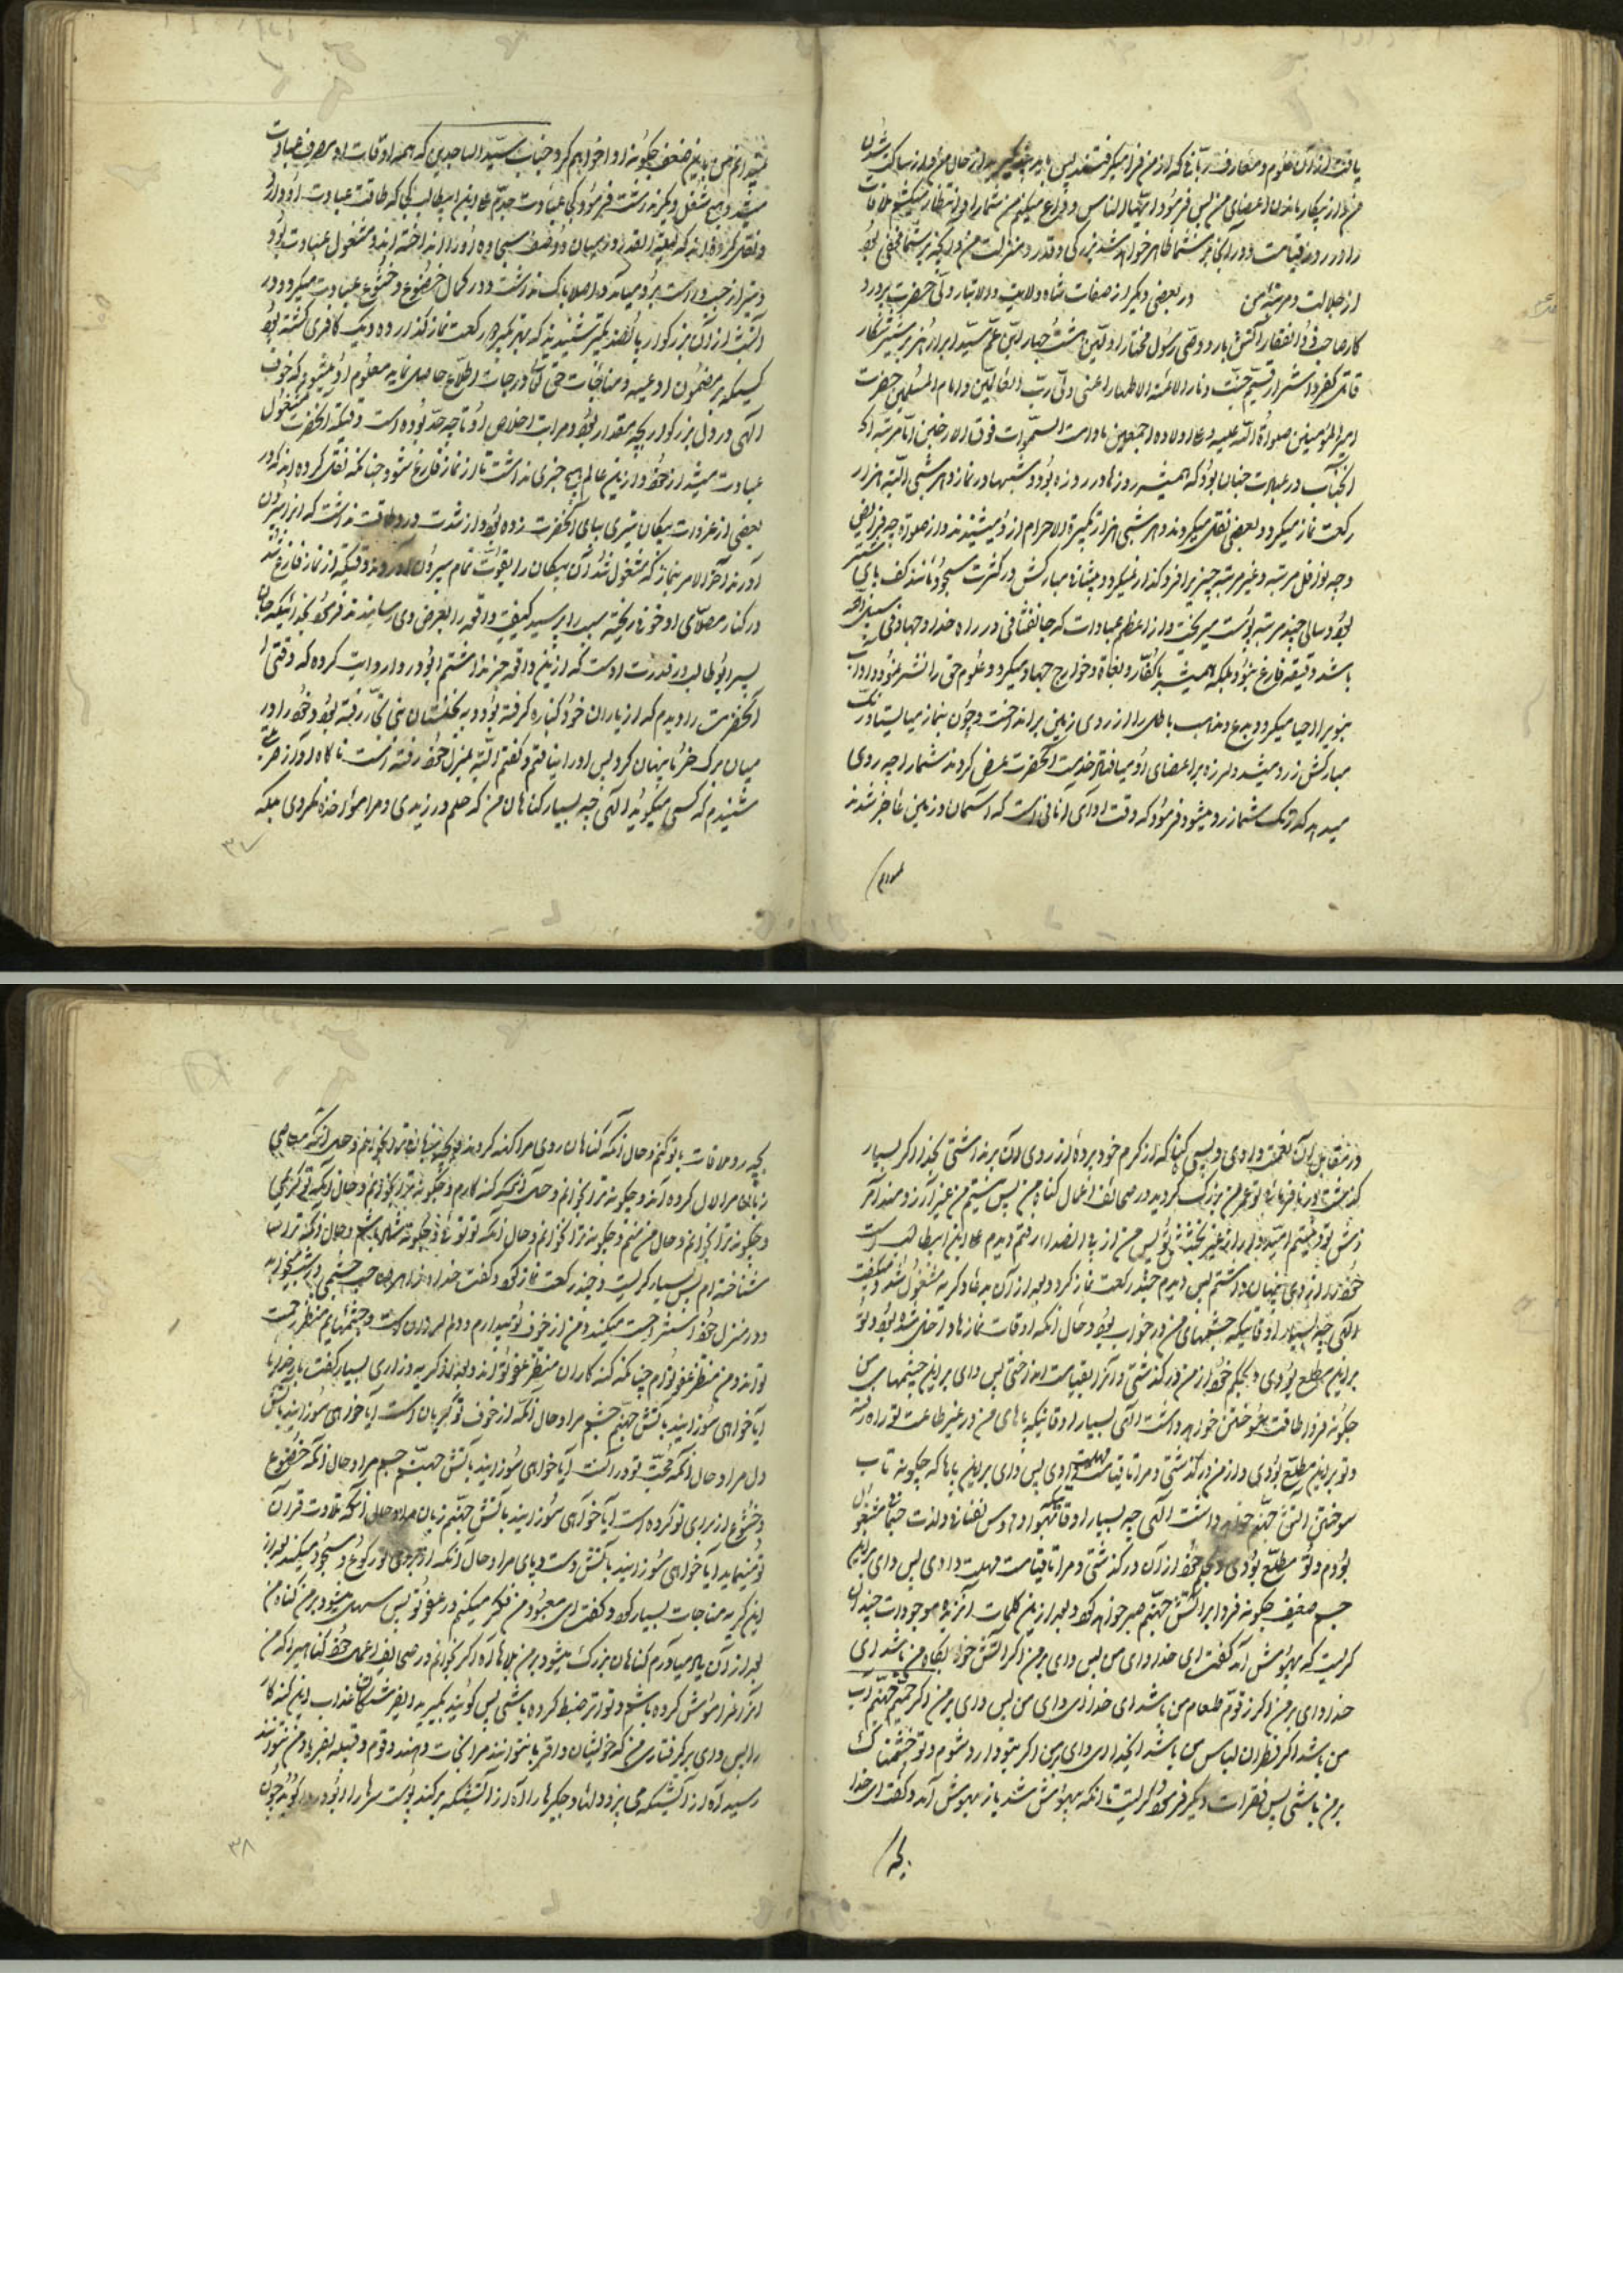 یافت از آن علوم و معارف ربانی که از من فرا میگرفتند پس باید پند گیرید از حال من و از ساکت شدن
من و از بیکار ماندن اعضای من پس فرمود ایها الناس وداع میکنم من شما را و انتظار میکشم ملاقات
را در روز قیامت و در آن روز بر شما ظاهر خواهد شد بزرگی و قدر و منزلت من و آنچه بر شما مخفی بود
از جلالت و مرتبه من در بعضی دیگر از صفات شاه ولایت والاتبار ولی حضرت پرورد
کار صاحب ذوالفقار وصی رسول مختار سید ابرار
قاتل کفره اشرار قسیم جنت و نار ابو الائمة الاطهار اعنی ولی رب العالمین و امام المسلمین حضرت
امیر المؤمنین صلواة الله علیه و علی اولاده اجمعین مادامت السموات فوق الارضین اما مرتبه
آنجناب در عبادت چنان بود که همیشه روزها در روزه بود و شبها در نماز و هر شبی البته هزار
رکعت نماز میکرد و بعضی نقل میکردند هر شبی هزار تکبیرة الاحرام از او میشنیدند از صلواة چه فرایض
و چه نوافل مرتبه و غیر مرتبه چیزی را فروگذار نمیکرد و پیشانی مبارکش در کثرت سجود مانند کف پای شتر
بود و سالی چند مرتبه پوست میریخت و از اعظم عبادات که جانفشانی در راه خدا و جهاد فی سبیل الله
باشد دقیقه فارغ نبود بلکه همیشه با کفار و بغاة و خوارج جهاد میکرد و علوم حق را نشر نمود و آداب
نبوی را احیا میکرد و بدع و مذاهب باطل را از روی زمین برانداخت و چون بنماز میایستاد رنگ
مبارکش زرد میشد و لرزه بر اعضای او میافتاد خدمت آنحضرت عرض کردند شما را چه روی
میدهد که رنگ شما زرد میشود فرمود که وقت ادای امانتی است که آسمان و زمین عاجز شدند
نمیدانم من باین ضعف چگونه ادا خواهم کرد و جناب سید الساجدین که همه اوقات او صرف عبادت
میشد و هیچ شغل دیگر نداشت فرمود کی عبادت جدم علی ابن ابیطالب کی که طاقت عبادت او دارد
و نقل کرده اند که لیلة الهریر در میان دو صف سجاده او را انداخته اند و مشغول عبادت بود
و تیر از چپ و راست بر او میآمد و اصلا باک نداشت و در کمال خضوع و خشوع عبادت میکرد و در
آنشب از آن بزرکوار پانصد تکبیر شنیدند که بهر تکبیر رکعت نماز گذارده و یک کافری کشته بود
کسیکه بر مضمون ادعیه و مناجات حق تعالی و درجات اطلاع حاصل نماید معلوم او میشود که خوف
الهی در دل بزرکوار بچه مقدار بود و مراتب اخلاص او تا چه حد بوده است وقتیکه آنحضرت مشغول
عبادت میشد از خود و از این عالم هیچ خبری نداشت تا از نماز فارغ شود چنانکه نقل کرده اند که در
بعضی از غزوات پیکان تیری بپای آنحضرت زده بود و از شدت درد طاقت نداشت که آنرا بیرون
آورند آخر الامر بنماز که مشغول شد آن پیکان را بقوت تمام بیرون آوردند وقتیکه از نماز فارغ شد
در کنار مصلای او خون ریخته سبب را پرسید کیفیت واقعه را بعرض وی رسانیدند فرمود بخدائیکه جان
پسر ابوطالب در قدرت اوست که از این واقعه خبر نداشتم ابو دردا روایت کرده که وقتی
آنحضرت را دیدم که از یاران خود کناره گرفته بود و به نخلستان بنی نجار رفته بود و خود را در
میان برک خرما پنهان کرد پس او را نیافتم و گفتم البته بمنزل خود رفته است ناگاه آواز حزینی
شنیدم که کسی میگوید الهی چه بسیار گناهان من که حلم ورزیدی و مرا مؤاخذه نکردی بلکه
۳۷
در مقابل آن نعمت دادی و بسی گناه که از کرم خود پرده از روی آن برنداشتی بخداوندا اگر بسیار
کذشت در نافرمانی تو عمر من و بزرگ گردید در صحائف اعمال گناه من پس نیستم من غیر آرزومند آمر
زش تو و نیستم امیدوار غیر بخشش تو پس من از پی صدا رفتم دیدم علی ابن ابیطالب است
خود را از وی پنهان داشتم پس دیدم چند رکعت نماز کرد و بعد از آن به دعا و گریه مشغول شد و میگفت
الهی چه بسیار اوقاتیکه چشمهای من در خواب بود و حال آنکه اوقات نمازها داخل شده بود و تو
بر این مطلع بودی و بحلم خود از من درگذشتی و آنرا بقیامت انداختی پس وای بر این چشمها پس
چگونه فردا طاقت سوختن خواهد داشت الهی بسیار اوقاتیکه پاهای من در غیر طاعت تو راه رفته
و تو بر این مطلع بودی و از من درگذشتی و مرا تا قیامت مهلت دادی پس وای بر این پاها که چگونه تاب
سوختن آتش جهنم خواهد داشت الهی چه بسیار اوقاتیکه بهوا و هوس نفسانی و لذت جسمانی مشغول
بودم و تو مطلع بودی و بحلم خود از آن درگذشتی و مرا تا قیامت مهلت دادی پس وای بر این
جسم ضعیف چگونه فردا بر آتش جهنم صبر خواهد کرد و بعد از این کلمات آنزبده موجودات چندان
گریست که بیهوش آمد گفت ای خداوای من پس وای بر من اگر آتش خوابگاه من باشد ای
خدا وای بر من اگر زقوم طعام من باشد ای خدا ای وای من پس وای بر من اگر حمیم جهنم آب
من باشد اگر قطران لباس من باشد ایخدا ای وای بر من اگر بتو وارد شوم و تو خشمناک
بر من باشی پس فقرات دیگر فرمود و گریست تا آنکه بیهوش شد باز بهوش آمد و گفت ای خدا
بچه رو ملاقات با تو کنم و حال آنکه گناهان روی مرا کهنه کردند و بچه زبان تو را بخوانم و حال آنکه معاصی
زبان مرا لال کرده اند و چگونه ترا بخوانم و حال آنکه گنه کارم و چگونه ترا نخوانم و حال آنکه تو کریمی
و چگونه ترا بخوانم و حال من منم و چگونه ترا نخوانم و حال آنکه تو توئی و چگونه شاد باشم و حال آنکه ترا
شناخته ام پس بسیار گریست و چند رکعت نماز کرد و گفت خداوندا هر صاحب چشمی در شب بخوابد
و در منزل خود استراحت میکند و من از خوف تو بیدارم و دلم لرزان است و چشمهایم منتظر رحمت
تو اند و من منتظر عفو توام چنانکه گنه کاران منتظر عفو تو اند و بعد از گریه و زاری بسیار گفت بار خدایا
آیا خواهی سوزانید بآتش جهنم چشم مرا و حال آنکه از خوف تو گریان است آیا خواهی سوزانید بآتش
دل مرا و حال آنکه محبت تو در اوست آیا خواهی سوزانید بآتش جهنم جسم مرا و حال آنکه خضوع
و خشوع از برای تو کرده است آیا خواهی سوزانید بآتش جهنم زبان مرا و حال آنکه تلاوت قرآن
تو مینماید آیا خواهی سوزانید بآتش دست و پای مرا و حال آنکه از برای تو رکوع و سجود میکند بعد از
این گریه مناجات بسیار کرد و گفت ای معبود من فکر میکنم در عفو تو پس سهل میشود بر من گناه من
بعد از آن بیاد میآورم گناهان بزرگ میشود بر من بلاها آه اگر بخوانم در صحایف اعمال خود گناهیرا که من
آنرا فراموش کرده باشم و تو آنرا ضبط کرده باشی پس گوئید بگیرید ای فرشتگان عذاب این گنه کار
را پس وای بر گرفتاری من که خویشان و اقربا نتوانند مرا نجات دهند و قوم و قبیله بفریاد من نتوانند
رسید آه از آتشیکه می پزد دلها و جگرها را آه از آتشیکه برکند پوست سرها را ابو دردا گوید چون
۳۸